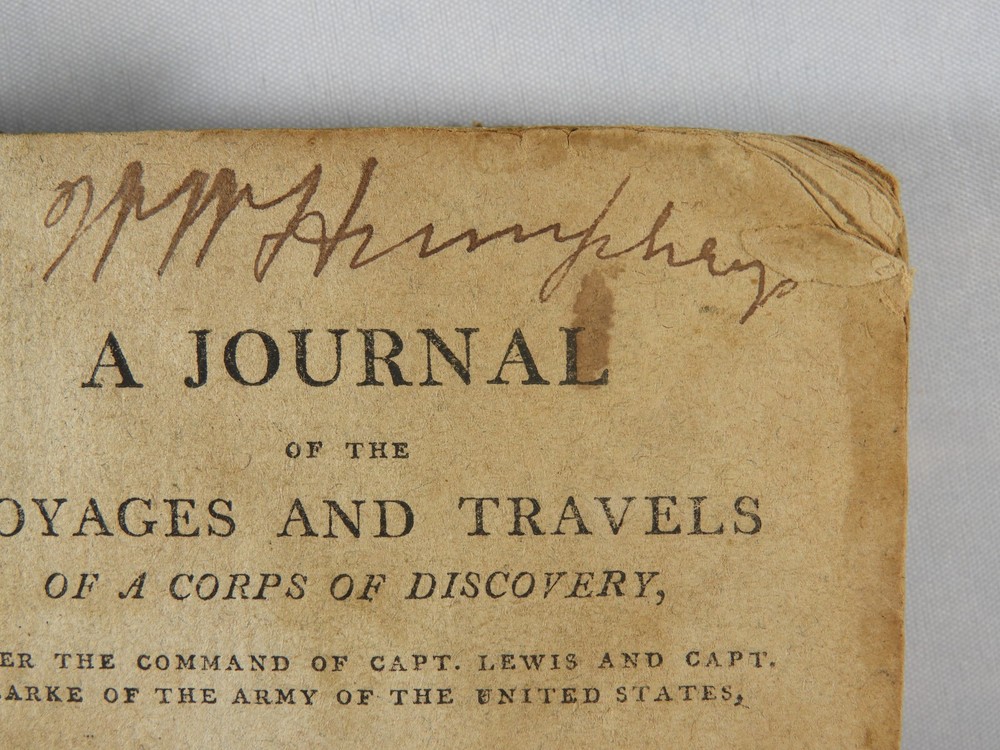 W W Humphrey
A JOURNAL
OF THE
OYAGES AND TRAVELS
OF A CORPS OF DISCOVERY,
ER THE COMMAND OF CAPT. LEWIS AND CAPT.
ARKE OF THE ARMY OF THE UNITED STATES,